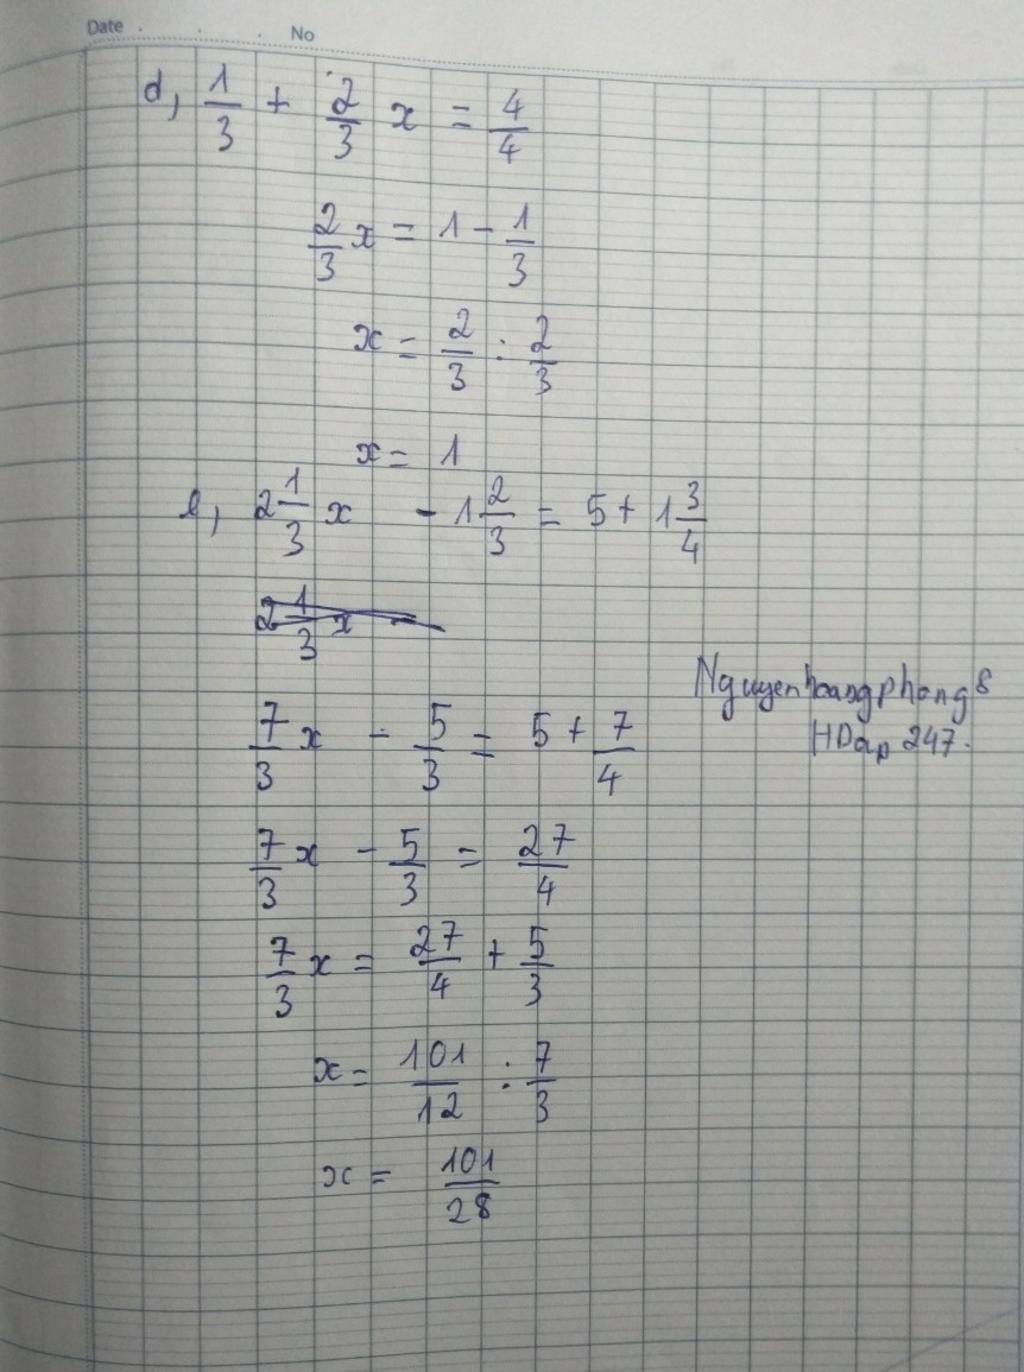 Date No
d, 1/3 + 2/3 x = 4/4
2/3 x = 1 - 1/3
x = 2/3 : 2/3
x = 1
e, 2 1/3 x - 1 2/3 = 5 + 1 3/4
2 1/3 x -
Nguyenhoangphong8
HDap 247.
7/3 x - 5/3 = 5 + 7/4
7/3 x - 5/3 = 27/4
7/3 x = 27/4 + 5/3
x = 101/12 : 7/3
x = 101/28